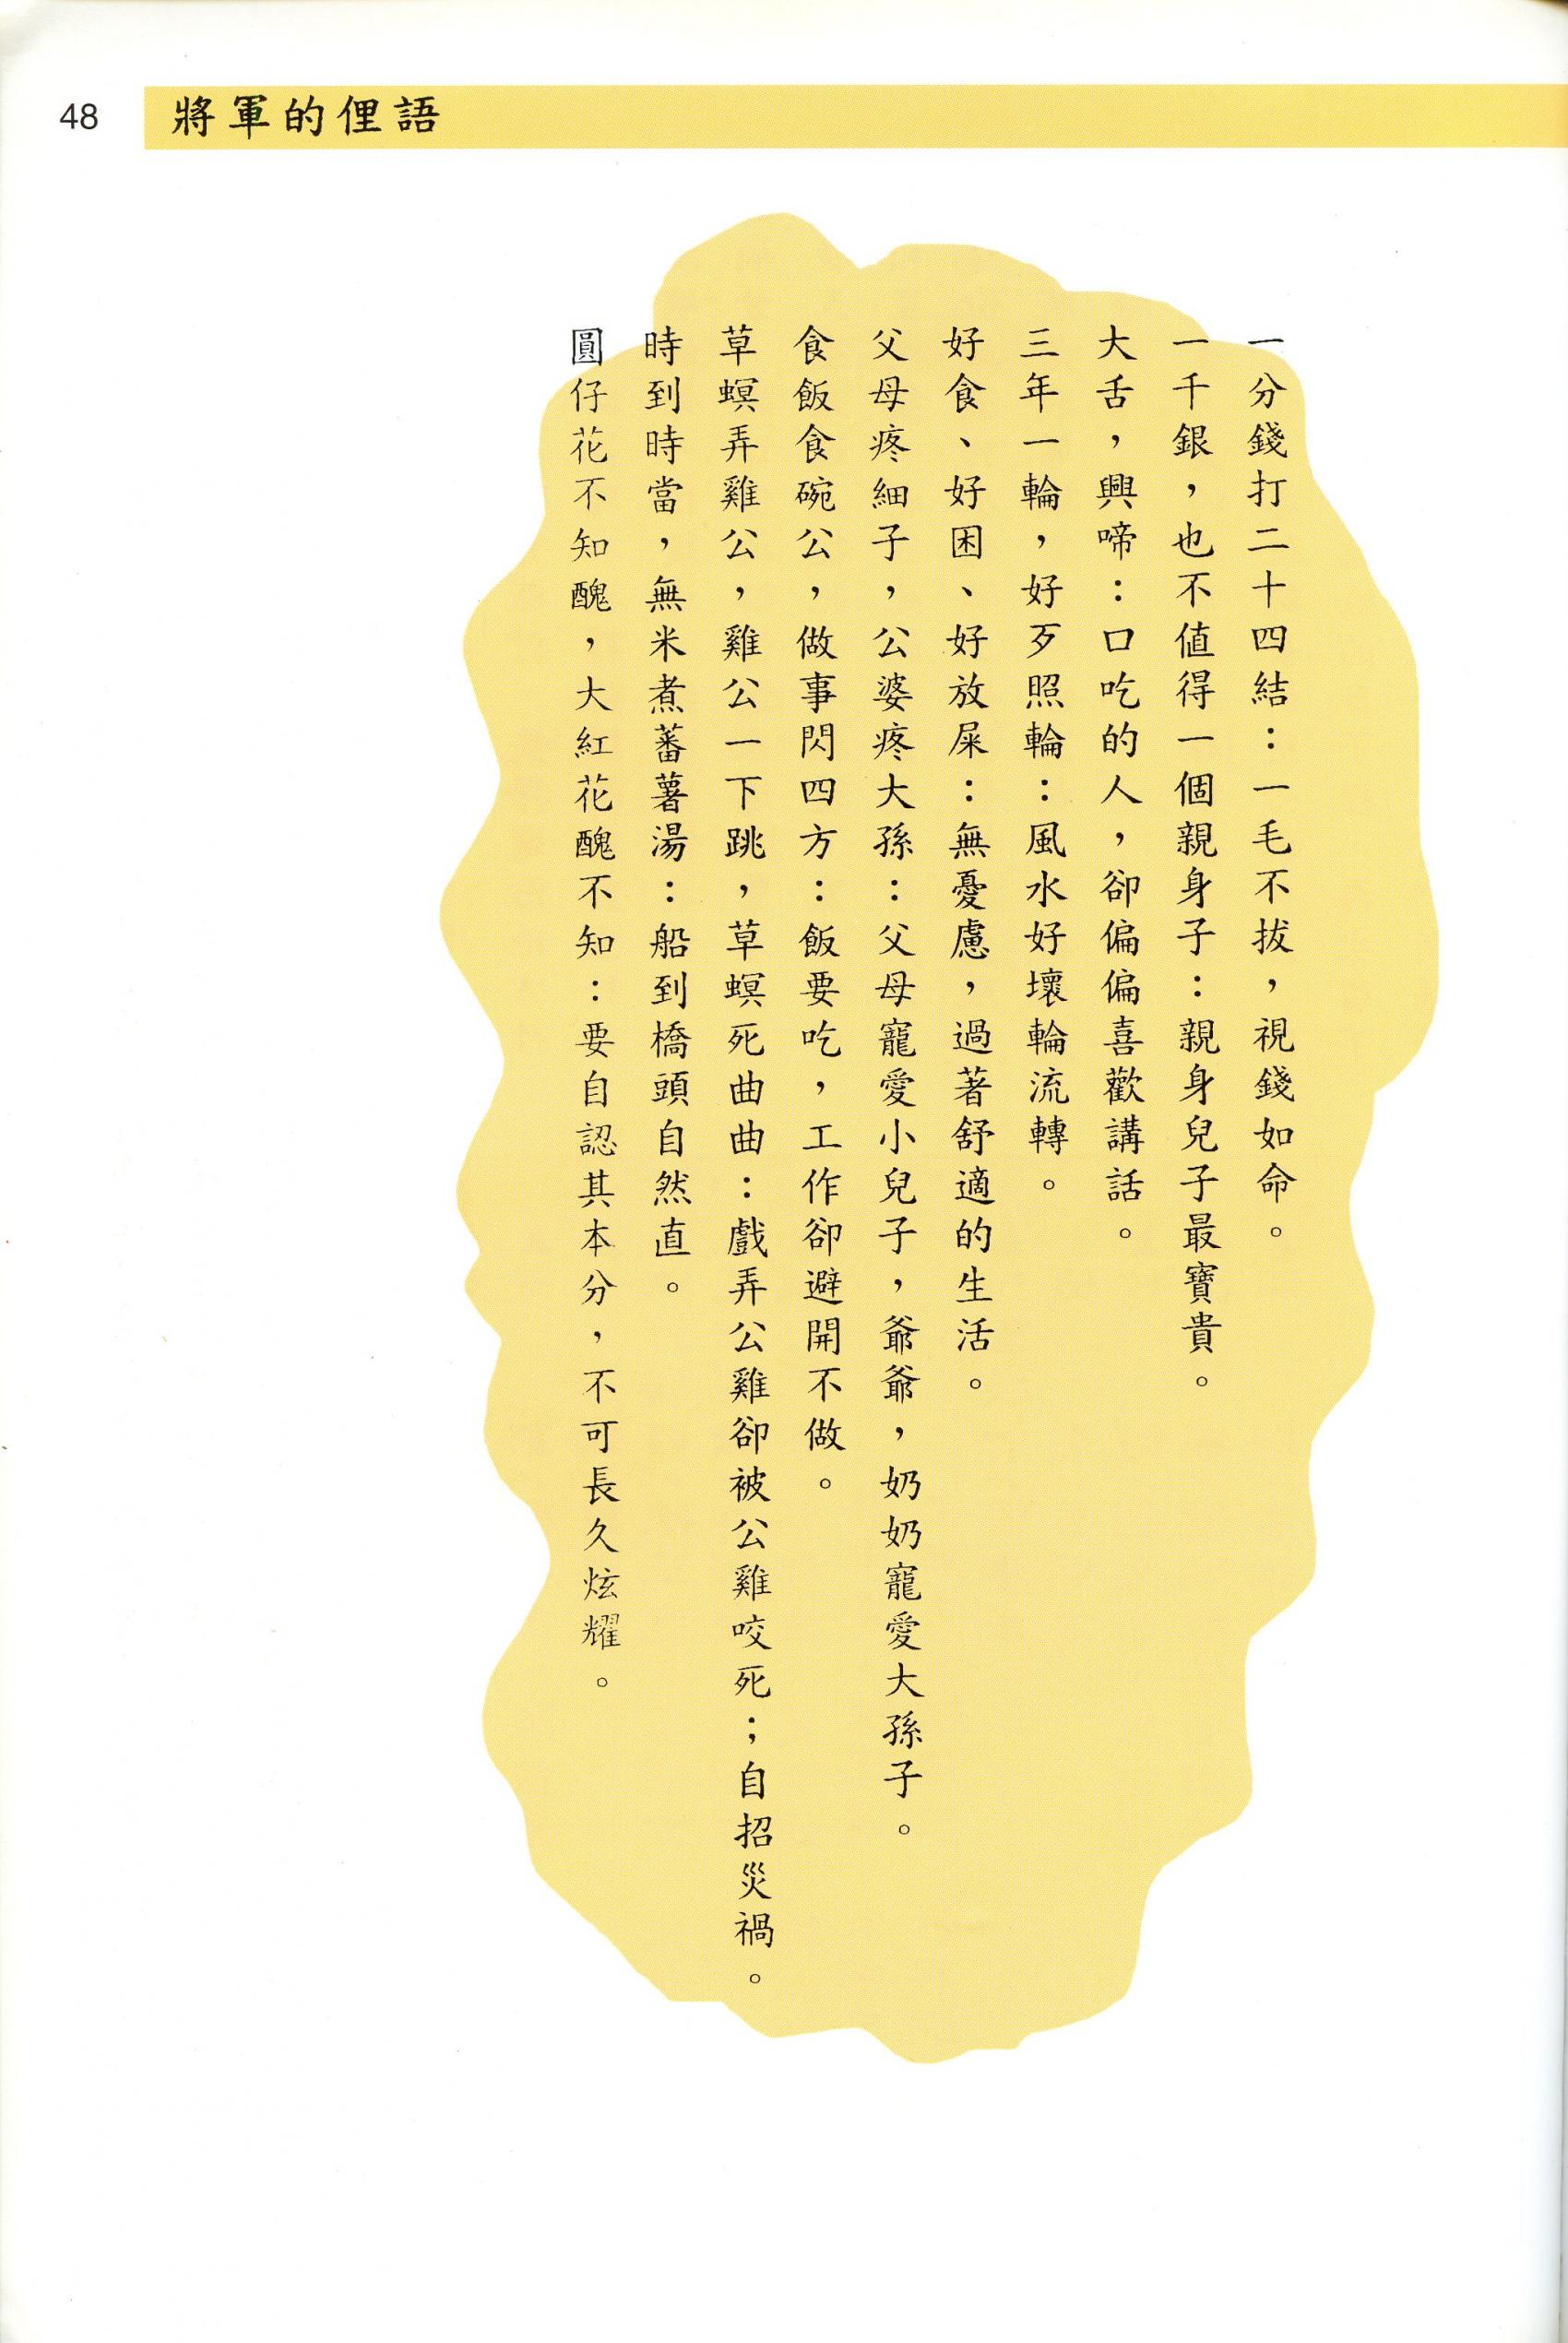 48
將軍的俚語
一分錢打二十四結：一毛不拔，視錢如命。
一千銀，也不值得一個親身子：親身兒子最寶貴。
大舌，興啼：口吃的人，卻偏偏喜歡講話。
三年一輪，好歹照輪：風水好壞輪流轉。
好食、好困、好放屎：無憂慮，過著舒適的生活。
父母疼細子，公婆疼大孫：父母寵愛小兒子，爺爺，奶奶寵愛大孫子。
食飯食碗公，做事閃四方：飯要吃，工作卻避開不做。
草螟弄雞公，雞公一下跳，草螟死曲曲：戲弄公雞卻被公雞咬死；自招災禍。
時到時當，無米煮蕃薯湯：船到橋頭自然直。
圓仔花不知醜，大紅花醜不知：要自認其本分，不可長久炫耀。